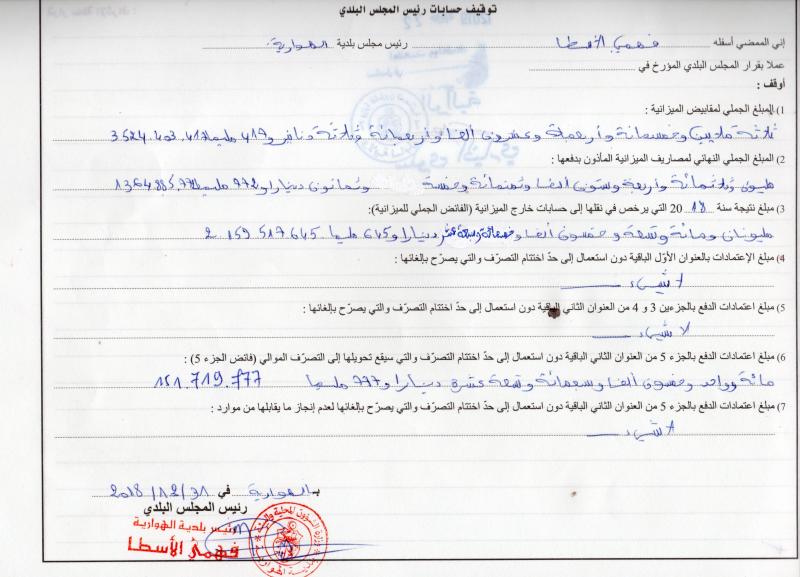 توقيف حسابات رئيس المجلس البلدي
إني الممضي أسفله فهمي الأسطا رئيس مجلس بلدية الهوارية
عملا بقرار المجلس البلدي المؤرخ في
أوقف :
1) المبلغ الجملي لمقابيض الميزانية :
ثلاثة ملايين وخمسمائة وأربعة وعشرون ألفا وأربعمائة وثلاثة دنانير و419 مليما 3.524.403.419
2) المبلغ الجملي النهائي لمصاريف الميزانية المأذون بدفعها :
مليون وثلاثمائة وأربعة وستون ألفا وثمنمائة وخمسة وثمانون دينارا و772 مليما 1364.885.772
3) مبلغ نتيجة سنة 2018 التي يرخص في نقلها إلى حسابات خارج الميزانية (الفائض الجملي للميزانية):
مليونان ومائة وتسعة وخمسون ألفا وخمسمائة وسبعة عشر دينارا و645 مليما 2.159.517.645
4) مبلغ الإعتمادات بالعنوان الأوّل الباقية دون استعمال إلى حدّ اختتام التصرّف والتي يصرّح بإلغائها :
لا شيء
5) مبلغ اعتمادات الدفع بالجزءين 3 و 4 من العنوان الثاني الباقية دون استعمال إلى حدّ اختتام التصرّف والتي يصرّح بإلغائها :
لا شيء
6) مبلغ اعتمادات الدفع بالجزء 5 من العنوان الثاني الباقية دون استعمال إلى حدّ اختتام التصرّف والتي سيقع تحويلها إلى التصرّف الموالي (فائض الجزء 5) :
مائة وواحد وخمسون ألفا وسبعمائة وتسعة عشرة دينارا و777 مليما 151.719.777
7) مبلغ اعتمادات الدفع بالجزء 5 من العنوان الثاني الباقية دون استعمال إلى حدّ اختتام التصرّف والتي يصرّح بإلغائها لعدم إنجاز ما يقابلها من موارد :
لا شيء
بـالهوارية في 2018/12/31
رئيس المجلس البلدي
رئيس بلدية الهوارية
فهمي الأسطا